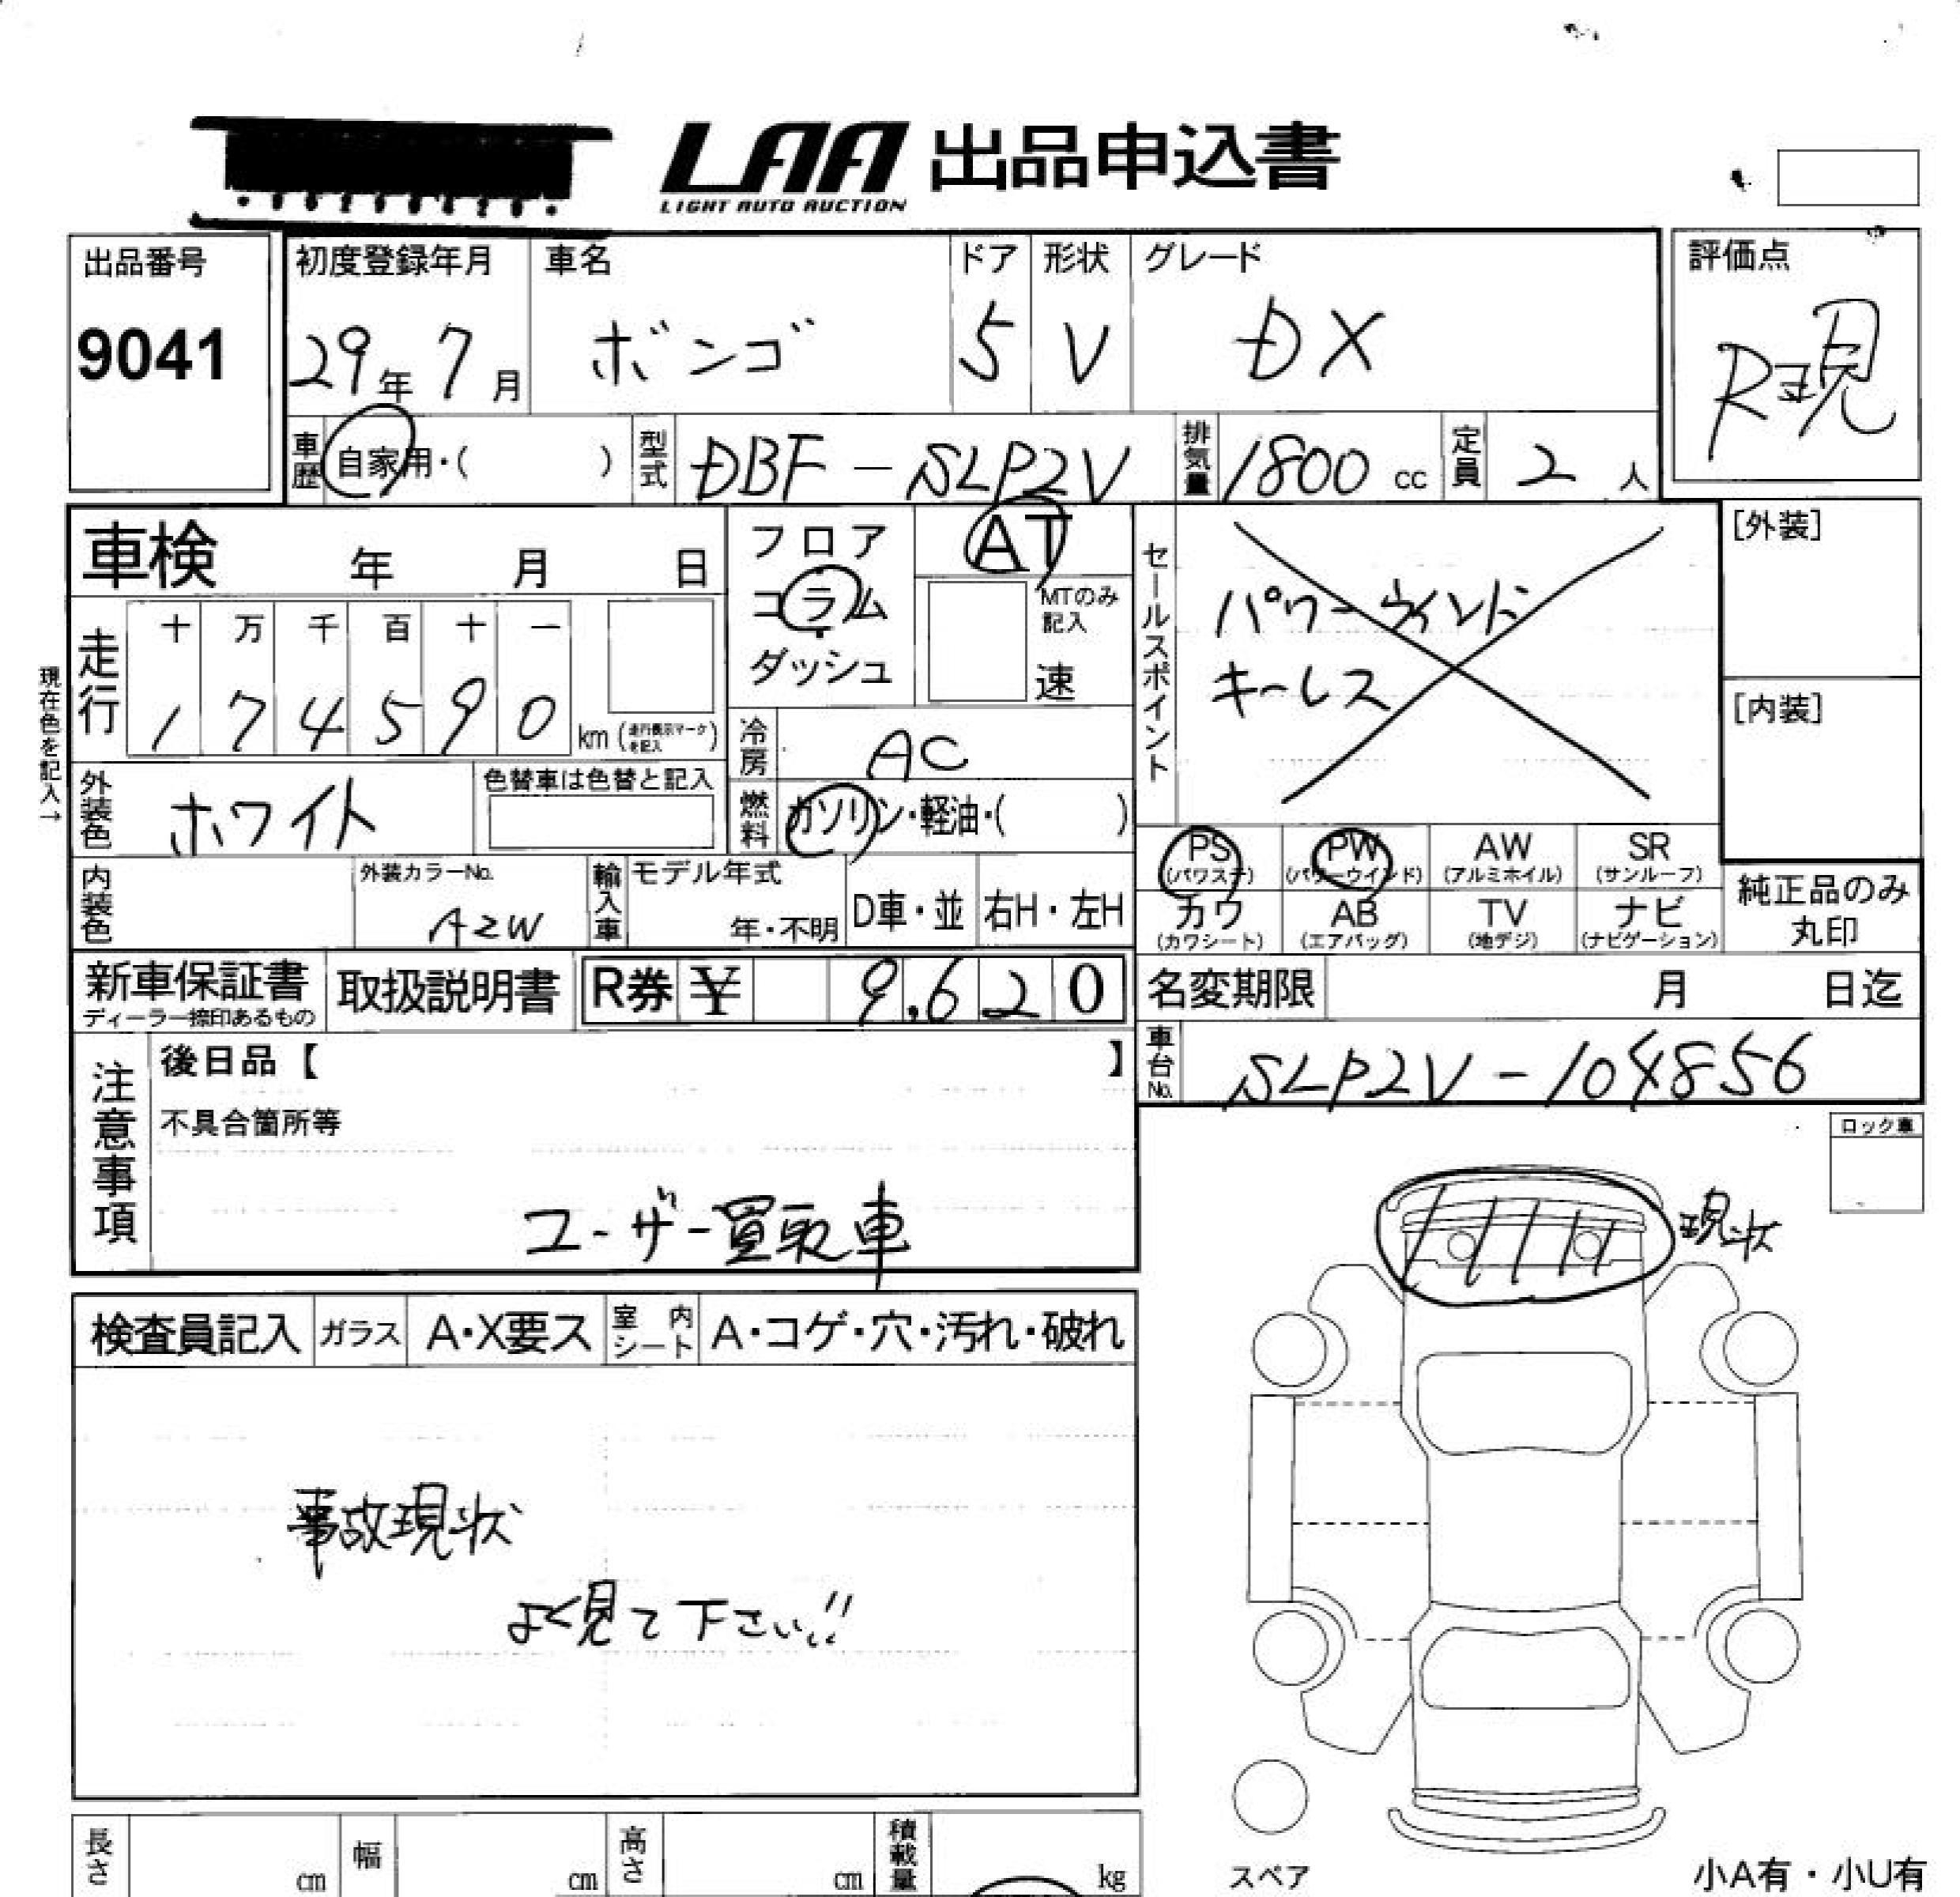 LAA 出品申込書
LIGHT AUTO AUCTION
出品番号 9041
初度登録年月 29年 7月
車名 ボンゴ
ドア 5
形状 V
グレード DX
評価点 R現
車歴 自家用・( )
型式 DBF-SLP2V
排気量 1800 cc
定員 2 人
車検 年 月 日
フロア
コラム
ダッシュ
AT
MTのみ記入
速
セールスポイント
パワーウインド
キーレス
[外装]
[内装]
現在色を記入→
走行 十 万 千 百 十 一
1 7 4 5 9 0 km (走行表示マークを記入)
冷房 AC
外装色 ホワイト
色替車は色替と記入
燃料 ガソリン・軽油・( )
PS (パワステ)
PW (パワーウインド)
AW (アルミホイル)
SR (サンルーフ)
カワ (カワシート)
AB (エアバッグ)
TV (地デジ)
ナビ (ナビゲーション)
純正品のみ
丸印
内装色
外装カラーNo. A2W
輸入車
モデル年式 年・不明
D車・並
右H・左H
新車保証書
ディーラー捺印あるもの
取扱説明書
R券 ¥ 9,620
名変期限 月 日迄
車台No. SLP2V-104856
注意事項
後日品【 】
不具合箇所等
ユーザー買取車
ロック車
現状
検査員記入
ガラス A・X要ス
室内シート A・コゲ・穴・汚れ・破れ
事故現状
よく見て下さい!!
長さ cm
幅 cm
高さ cm
積載量 kg
スペア
小A有・小U有